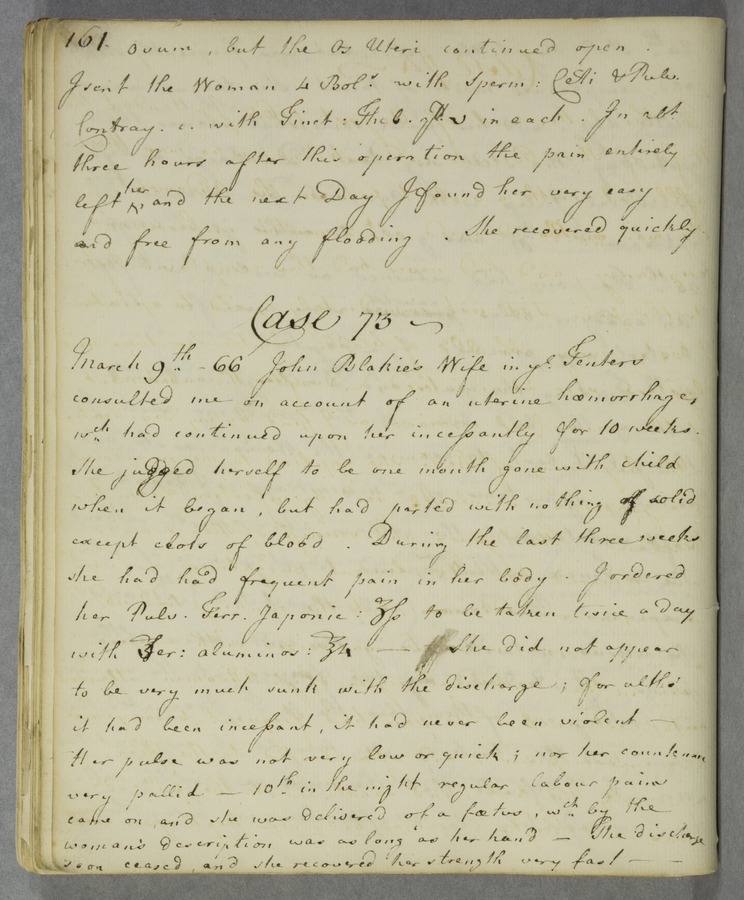 161.
Ovum, but the Os Uteri continued open.
I sent the Woman 4 Bol.s with Sperm: Ceti & Pulv.
Contray. c. with Tinct: Theb. in each. In abt.
three hours after this operation the pain entirely
left her and the next Day I found her very easy
and free from any flooding. She recovered quickly.
Case 73
March 9th. -66 John Blakie's Wife in ye. Fenters
consulted me on account of an uterine hæmorrhage,
wch. had continued upon her incessantly for 10 weeks.
She judged herself to be one month gone with child
when it began, but had parted with nothing of solid
except clots of blood. During the last three weeks
she had had frequent pain in her body. I ordered
her Pulv. Terr. Japonic: ʒß to be taken twice a day
with Ser: aluminos: — She did not appear
to be very much sunk with the discharge; for altho'
it had been incessant, it had never been violent —
Her pulse was not very low or quick; nor her countenance
very pallid — 10th. in the night regular labour pains
came on, and she was delivered of a fœtus, wch. by the
woman's description was as long as her hand — The discharge
soon ceased, and she recovered her strength very fast — —